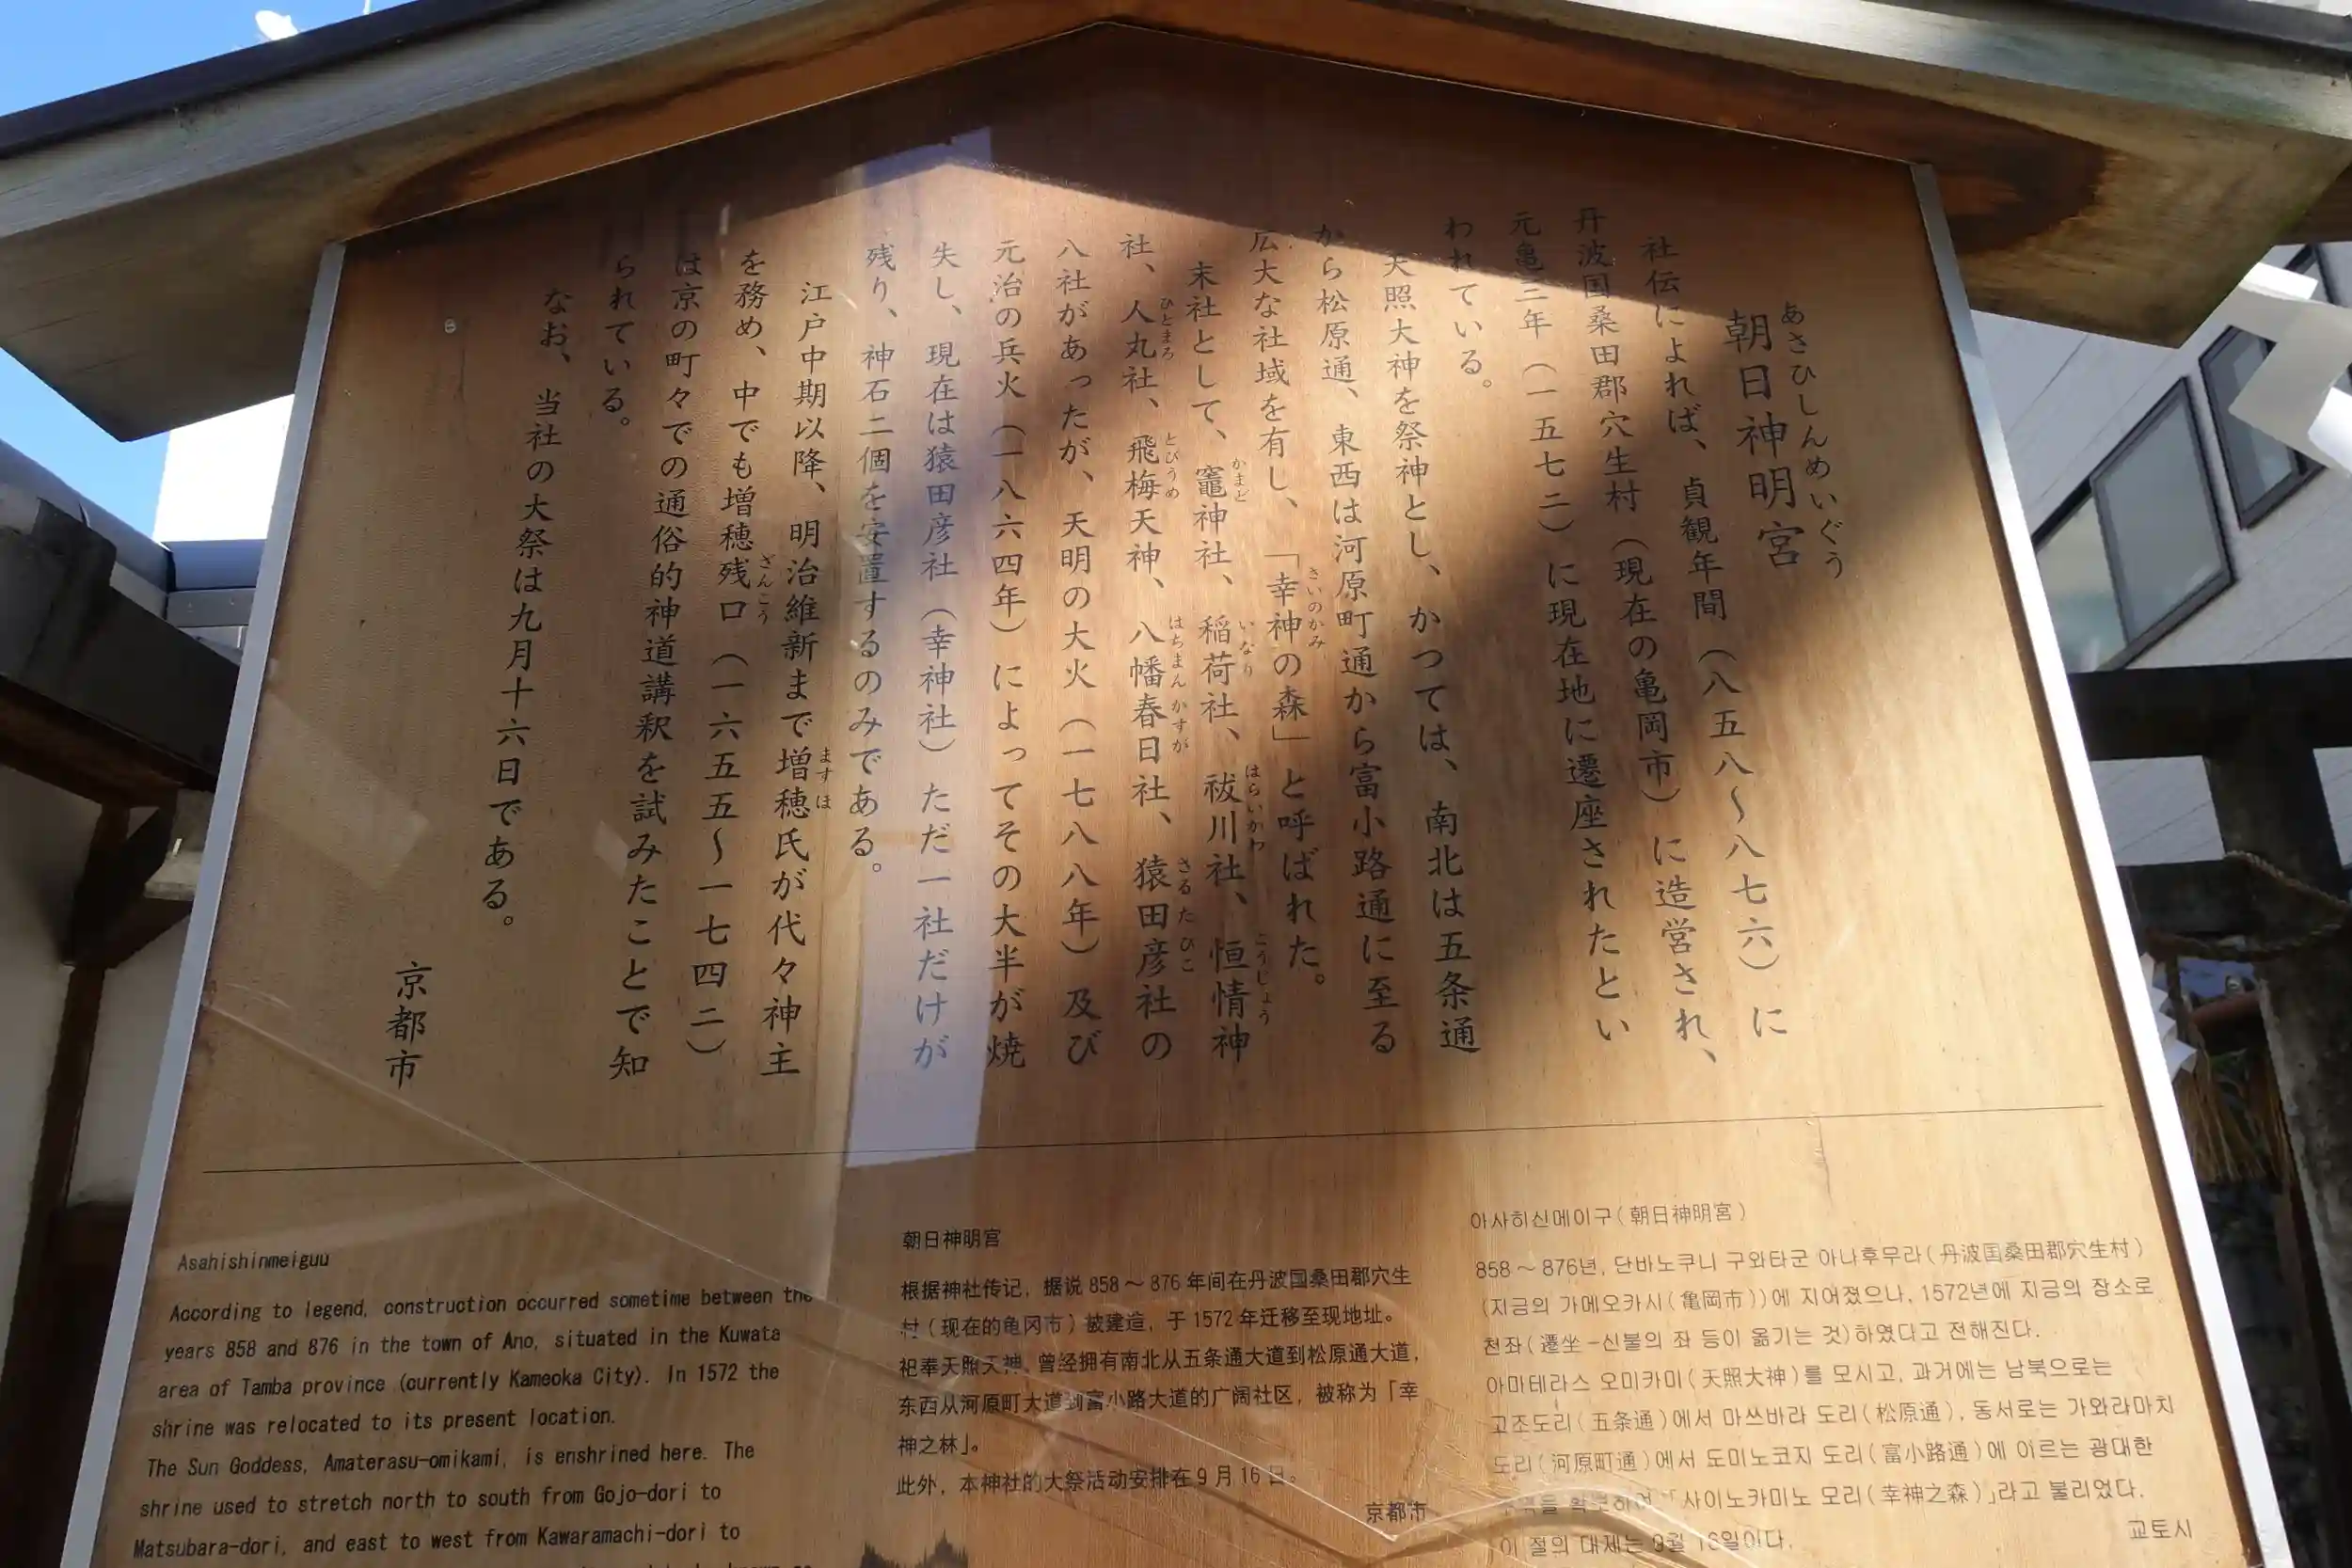 あさひしんめいぐう
朝日神明宮
社伝によれば、貞観年間（八五八〜八七六）に
丹波国桑田郡穴生村（現在の亀岡市）に造営され、
元亀三年（一五七二）に現在地に遷座されたとい
われている。
天照大神を祭神とし、かつては、南北は五条通
から松原通、東西は河原町通から富小路通に至る
さいのかみ
広大な社域を有し、「幸神の森」と呼ばれた。
かまど いなり はらいかわ こうじょう
末社として、竈神社、稲荷社、祓川社、恒情神
ひとまろ とびうめ はちまんかすが さるたひこ
社、人丸社、飛梅天神、八幡春日社、猿田彦社の
八社があったが、天明の大火（一七八八年）及び
元治の兵火（一八六四年）によってその大半が焼
失し、現在は猿田彦社（幸神社）ただ一社だけが
残り、神石二個を安置するのみである。
ますほ
江戸中期以降、明治維新まで増穂氏が代々神主
ざんこう
を務め、中でも増穂残口（一六五五〜一七四二）
は京の町々での通俗的神道講釈を試みたことで知
られている。
なお、当社の大祭は九月十六日である。
京都市
Asahishinmeiguu
According to legend, construction occurred sometime between the
years 858 and 876 in the town of Ano, situated in the Kuwata
area of Tamba province (currently Kameoka City). In 1572 the
shrine was relocated to its present location.
The Sun Goddess, Amaterasu-omikami, is enshrined here. The
shrine used to stretch north to south from Gojo-dori to
Matsubara-dori, and east to west from Kawaramachi-dori to
朝日神明宮
根据神社传记，据说 858 ～ 876 年间在丹波国桑田郡穴生
村（现在的龟冈市）被建造，于 1572 年迁移至现地址。
祀奉天照天神。曾经拥有南北从五条通大道到松原通大道，
东西从河原町大道到富小路大道的广阔社区，被称为「幸
神之林」。
此外，本神社的大祭活动安排在 9 月 16 日。
京都市
아사히신메이구(朝日神明宮)
858～876년, 단바노쿠니 구와타군 아나후무라(丹波国桑田郡穴生村)
(지금의 가메오카시(亀岡市))에 지어졌으나, 1572년에 지금의 장소로
천좌(遷坐-신불의 좌 등이 옮기는 것)하였다고 전해진다.
아마테라스 오미카미(天照大神)를 모시고, 과거에는 남북으로는
고조도리(五条通)에서 마쓰바라 도리(松原通), 동서로는 가와라마치
도리(河原町通)에서 도미노코지 도리(富小路通)에 이르는 광대한
「사이노카미노 모리(幸神之森)」라고 불리었다.
이 절의 대제는 9월 16일이다.
교토시